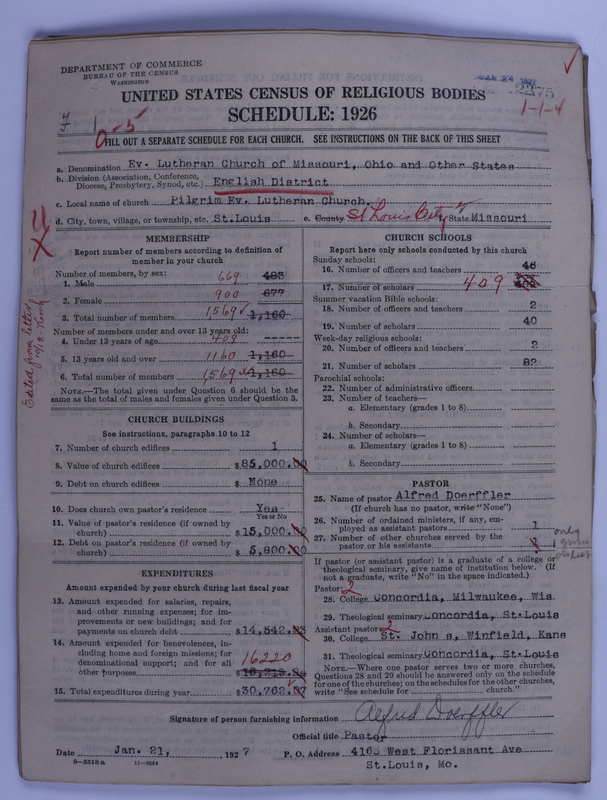 DEPARTMENT OF COMMERCE
BUREAU OF THE CENSUS
WASHINGTON
UNITED STATES CENSUS OF RELIGIOUS BODIES
SCHEDULE: 1926
1-1-4
0-5
FILL OUT A SEPARATE SCHEDULE FOR EACH CHURCH. SEE INSTRUCTIONS ON THE BACK OF THIS SHEET
a. Denomination Ev. Lutheran Church of Missouri, Ohio and Other States
b. Division (Association, Conference, Diocese, Presbytery, Synod, etc.) English District
c. Local name of church Pilgrim Ev. Lutheran Church.
d. City, town, village, or township, etc. St.Louis e. County St Louis City State Missouri
MEMBERSHIP
Report number of members according to definition of
member in your church
Number of members, by sex:
1. Male 669 483
2. Female 900 677
3. Total number of members 1569 1,160
Number of members under and over 13 years old:
4. Under 13 years of age 409 -----
5. 13 years old and over 1160 1,160
6. Total number of members 1,569 1,160
NOTE.—The total given under Question 6 should be the
same as the total of males and females given under Question 3.
CHURCH BUILDINGS
See instructions, paragraphs 10 to 12
7. Number of church edifices 1
8. Value of church edifices $85,000.00
9. Debt on church edifices $ None
10. Does church own pastor's residence Yes
Yes or No
11. Value of pastor's residence (if owned by
church) $15,000.00
12. Debt on pastor's residence (if owned by
church) $5,800.00
EXPENDITURES
Amount expended by your church during last fiscal year
13. Amount expended for salaries, repairs,
and other running expenses; for im-
provements or new buildings; and for
payments on church debt $14,542.
14. Amount expended for benevolences, in-
cluding home and foreign missions; for
denominational support; and for all
other purposes 16220
15. Total expenditures during year $30,762.
CHURCH SCHOOLS
Report here only schools conducted by this church
Sunday schools:
16. Number of officers and teachers 46
17. Number of scholars 409
Summer vacation Bible schools:
18. Number of officers and teachers 2
19. Number of scholars 40
Week-day religious schools:
20. Number of officers and teachers 2
21. Number of scholars 82
Parochial schools:
22. Number of administrative officers
23. Number of teachers—
a. Elementary (grades 1 to 8)
b. Secondary
24. Number of scholars—
a. Elementary (grades 1 to 8)
b. Secondary
PASTOR
25. Name of pastor Alfred Doerffler
(If church has no pastor, write "None")
26. Number of ordained ministers, if any, em-
ployed as assistant pastors 1
27. Number of other churches served by the
pastor or his assistants 1
only
If pastor (or assistant pastor) is a graduate of a college or
theological seminary, give name of institution below. (If
not a graduate, write "No" in the space indicated.)
Pastor: 2
28. College Concordia, Milwaukee, Wis.
29. Theological seminary Concordia, St.Louis
Assistant pastor: 2
30. College St. John s, Winfield, Kans
31. Theological seminary Concordia, St.Louis
NOTE.—Where one pastor serves two or more churches,
Questions 28 and 29 should be answered only on the schedule
for one of the churches; on the schedules for the other churches,
write "See schedule for church."
Signature of person furnishing information Alfred Doerffler
Official title Pastor
Date Jan. 21, 1927 P. O. Address 4163 West Florissant Ave
8-5518a 11-9054 St.Louis, Mo.